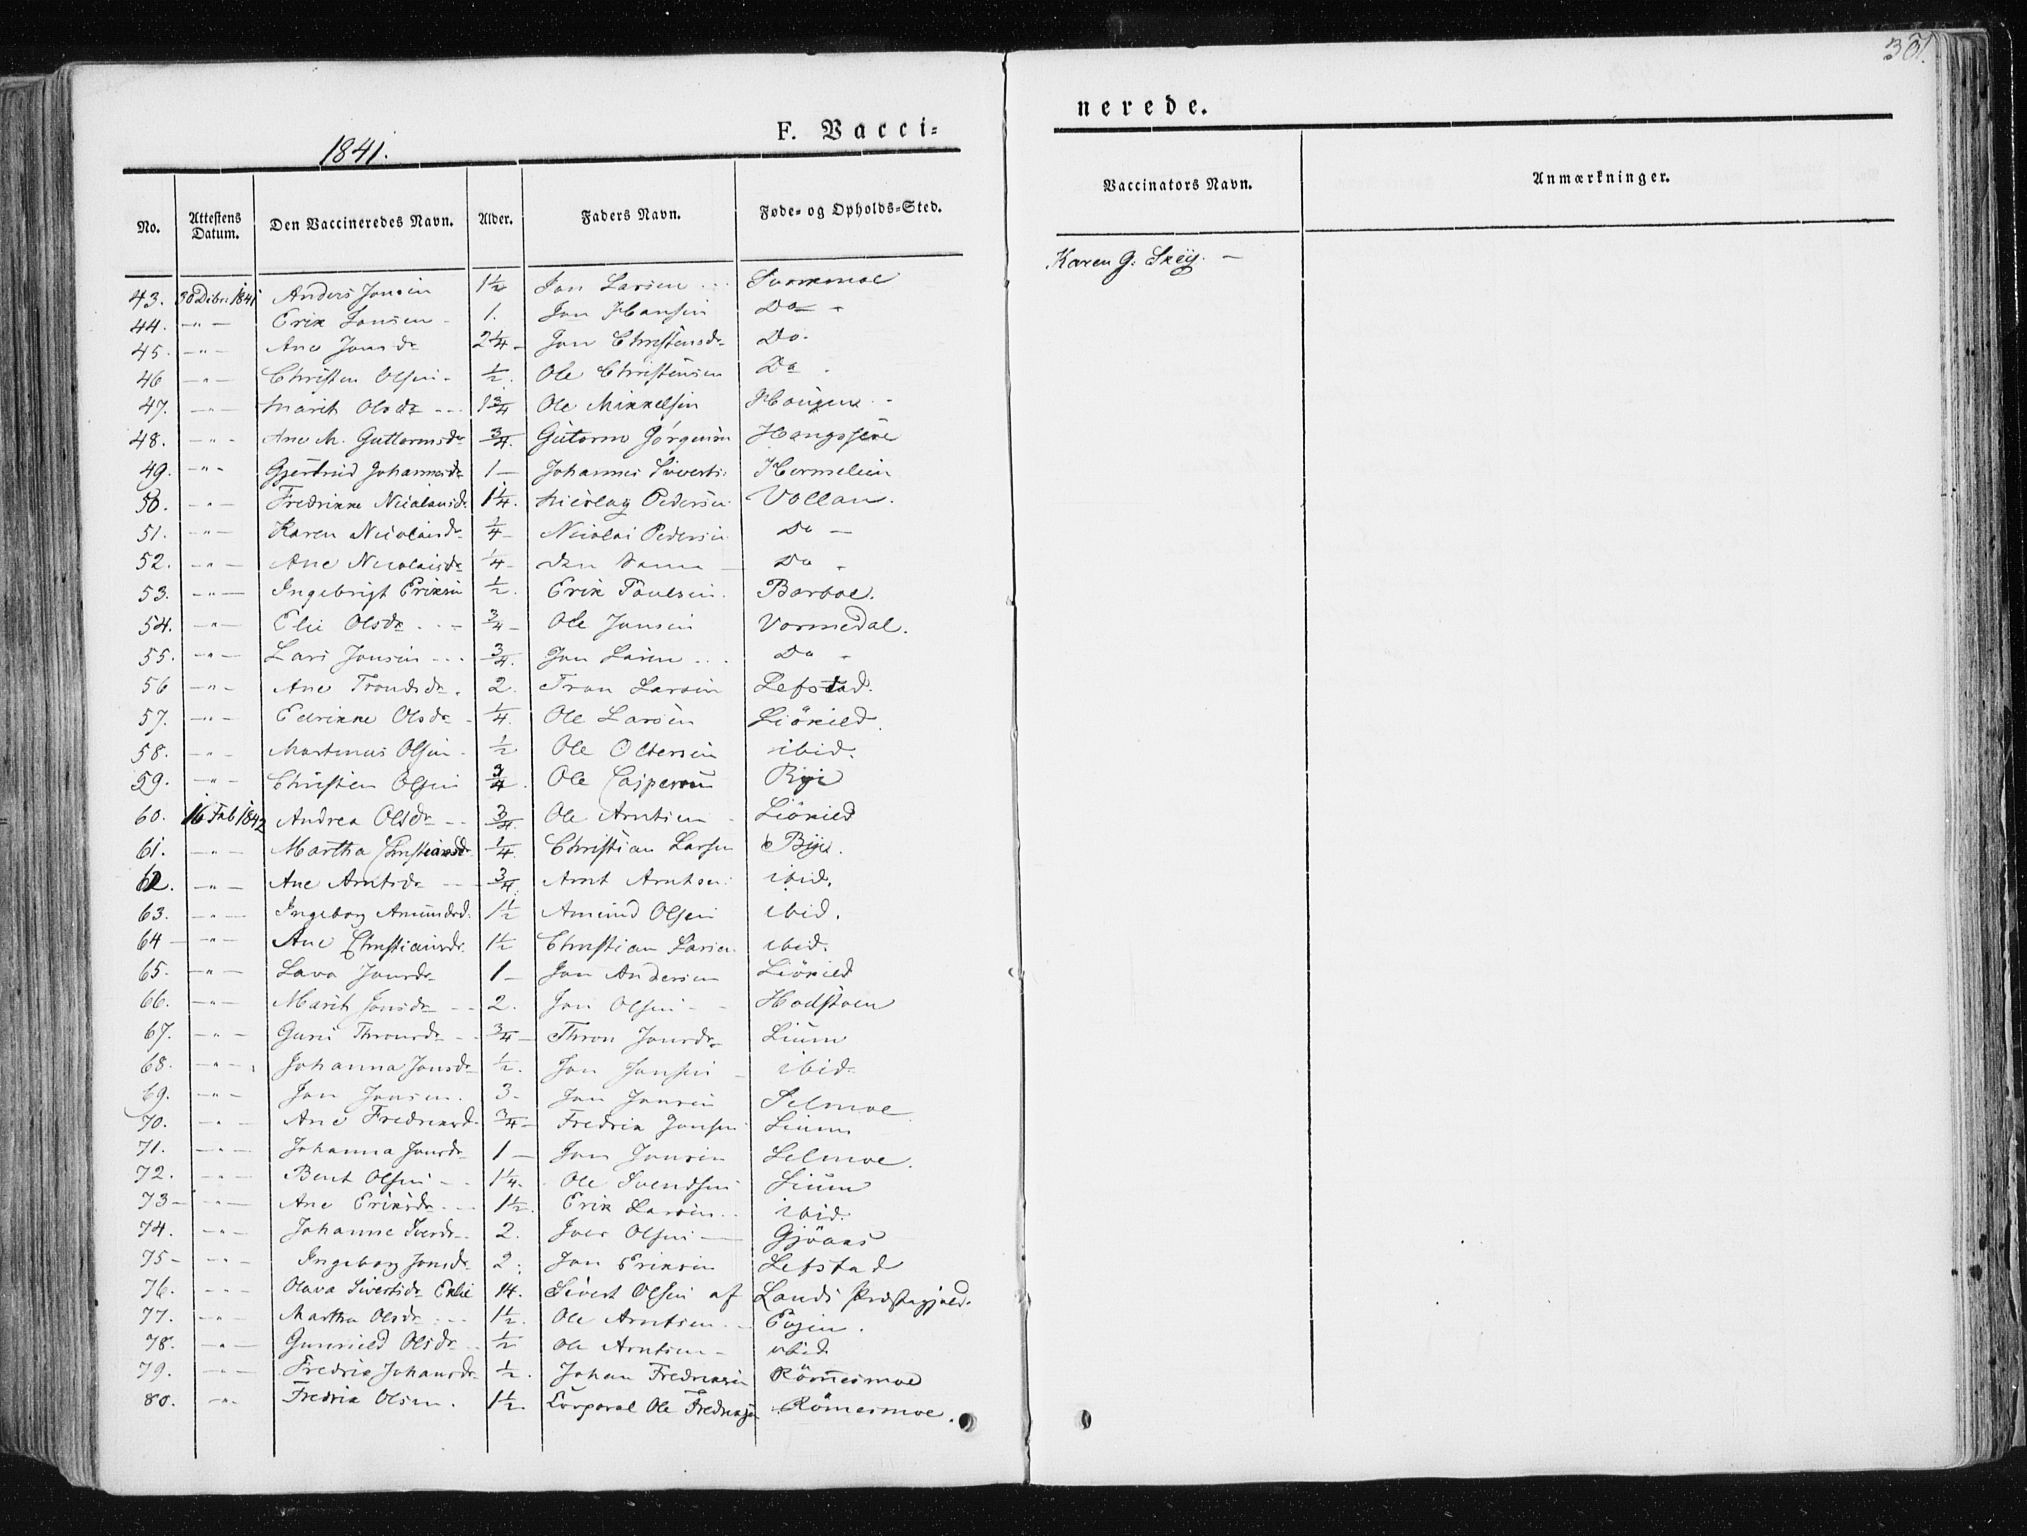 301.
1841.
F. Vacci=
nerede.
No. Attestens Datum. Den Vaccineredes Navn. Alder. Faders Navn. Føde= og Opholds=Sted. Vaccinators Navn. Anmærkninger.
43. 30 Debr 1841 Anders Jonsen 1½ Jon Larsen Karen G. Skey. —
44. — " — Erik Jonsen 1. Jon Hansen Do
45. — " — Ane Jonsdr 2¼ Jon Christensdr Do.
46 — " — Christen Olsen ½. Ole Christensen Do
47. — " — Marit Olsdr 1¾ Ole Mikkelsen Haugen
48. — " — Ane M. Guttormsdr ¾. Gutorm Jørgensen
49. — " — Gjertrud Johannesdr 1 — Johannes Siverts.
50. — " — Fredrikke Nicolaisdr 1¼. Nicolay Pedersen Vollan.
51. — " — Karen Nicolaisdr ¼ Nicolai Pedersen Do —
52. — " — Ane Nicolaisdr ¼ den samme Do
53. — " — Ingebrigt Eriksen ½. Erik Poulsen.
54. — " — Elie Olsdr ¾ Ole Jonsen Vormedal.
55. — " — Lars Jonsen ¾. Jon Larsen Do
56 — " — Ane Trondsdr. 2. Tron Larsen Lefstad.
57. — " — Edrikke Olsdr ¼. Ole Larsen Liökild.
58. — " — Martinus Olsen ½. Ole Oltersen ibid.
59. — " — Christen Olsen ¾. Ole Caspersen
60. 16 Feb 1842 Andrea Olsdr ¾. Ole Arntsen Liökild
61. — " — Martha Christiansdr ¼. Christian Larsen Bye.
62. — " — Ane Arntsdr ¾. Arnt Arntsen ibid.
63. — " — Ingeborg Amundsd. 1½ Amund Olsen ibid.
64 — — " — Ane Christiansdr. 1½ Christian Larsen ibid.
65. — " — Lava Jonsdr 1 — Jon Andersen Liökild
66. — " — Marit Jonsdr 2. Jon Olsen
67. — " — Guru Thronsdr ¾ — Thron Jonsdr Lium
68. — " — Johanna Jonsdr ½. Jon Jonsen ibid.
69. — " — Jon Jonsen. 3 Jon Jonsen Selmoe
70. — " — Ane Fredriksd. ¾ — Fredrik Jonsen Lium
71. — " — Johanna Jonsdr 1 — Jon Jonsen Selmoe.
72. — " — Bent Olsen 1¼. Ole Svendsen Lium
73 — — " — Ane Eriksdr 1½. Erik Larsen ibid.
74. — " — Johanne Iversdr 2. Iver Olsen — Gjöaas
75 — — " — Ingeborg Jonsdr 2. Jon Eriksen Lefstad
76. — " — Olava Sivertsdr 14. Sivert Olsen af Lands Præstegjeld.
77. — " — Martha Olsdr 1½. Ole Arntsen Evjen.
78. — " — Gunnild Olsdr ½ Ole Arntsen — ibid
79. — " — Fredrik Johansdr ½. Johan Fredriksen Römesmoe
80. — " — Fredrik Olsen. 1½. Corporal Ole Fredriksen Römesmoe.